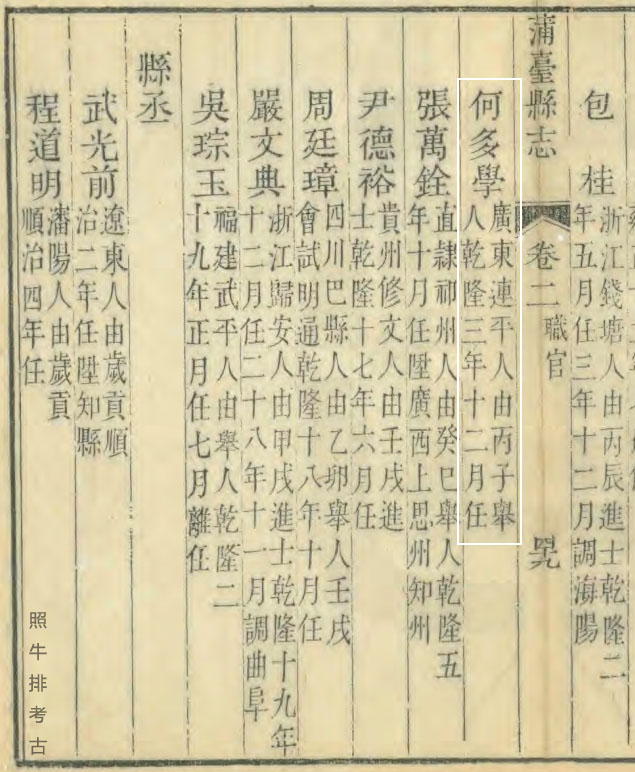 包桂
浙江錢塘人由丙辰進士乾隆二
年五月任三年十二月調海陽
蒲臺縣志
卷二
職官
何多學
廣東連平人由丙子舉
人乾隆三年十二月任
張萬銓
直隸祁州人由癸巳舉人乾隆五
年十月任陞廣西上思州知州
尹德裕
貴州修文人由壬戌進
士乾隆十七年六月任
周廷璋
四川巴縣人由乙卯舉人壬戌
會試明通乾隆十八年十月任
嚴文典
浙江歸安人由甲戌進士乾隆十九年
十二月任二十八年十一月調曲阜
吳琮玉
福建武平人由舉人乾隆二
十九年正月任七月離任
縣丞
武光前
遼東人由歲貢順
治二年任陞知縣
程道明
瀋陽人由歲貢
順治四年任
照牛排考古